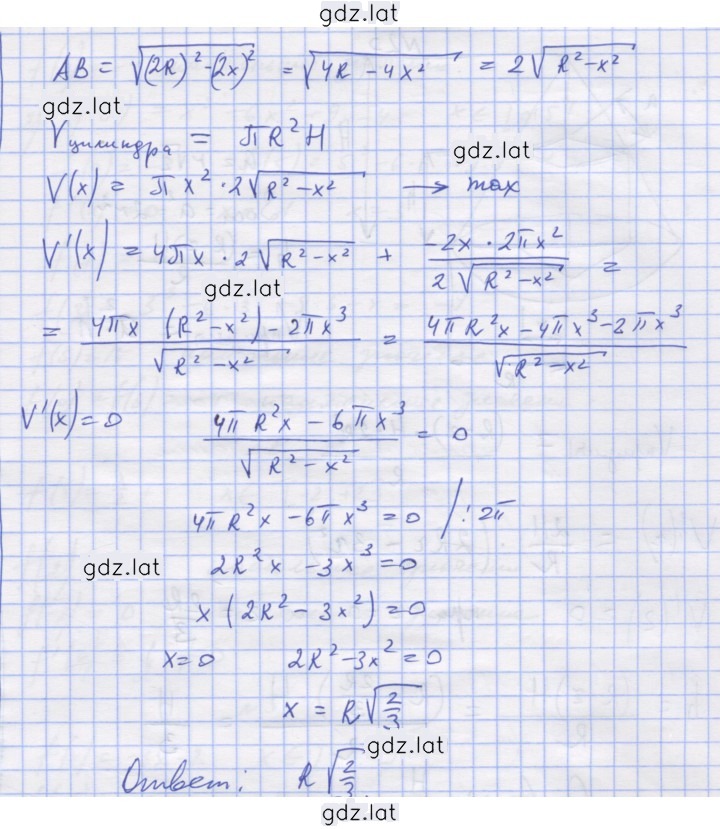 gdz.lat
AB = √((2R)² - (2x)²) = √(4R - 4x²) = 2√(R² - x²)
gdz.lat
Vцилиндра = πR²H
gdz.lat
V(x) = πx² · 2√(R² - x²) → max
V'(x) = 4πx · 2√(R² - x²) + (-2x · 2πx²)/(2√(R² - x²)) =
gdz.lat
= (4πx (R² - x²) - 2πx³)/√(R² - x²) = (4πR²x - 4πx³ - 2πx³)/√(R² - x²)
V'(x) = 0 (4πR²x - 6πx³)/√(R² - x²) = 0
4πR²x - 6πx³ = 0 /: 2π
gdz.lat
2R²x - 3x³ = 0
x(2R² - 3x²) = 0
x = 0 2R² - 3x² = 0
x = R√(2/3)
gdz.lat
Ответ: R√(2/3)
gdz.lat